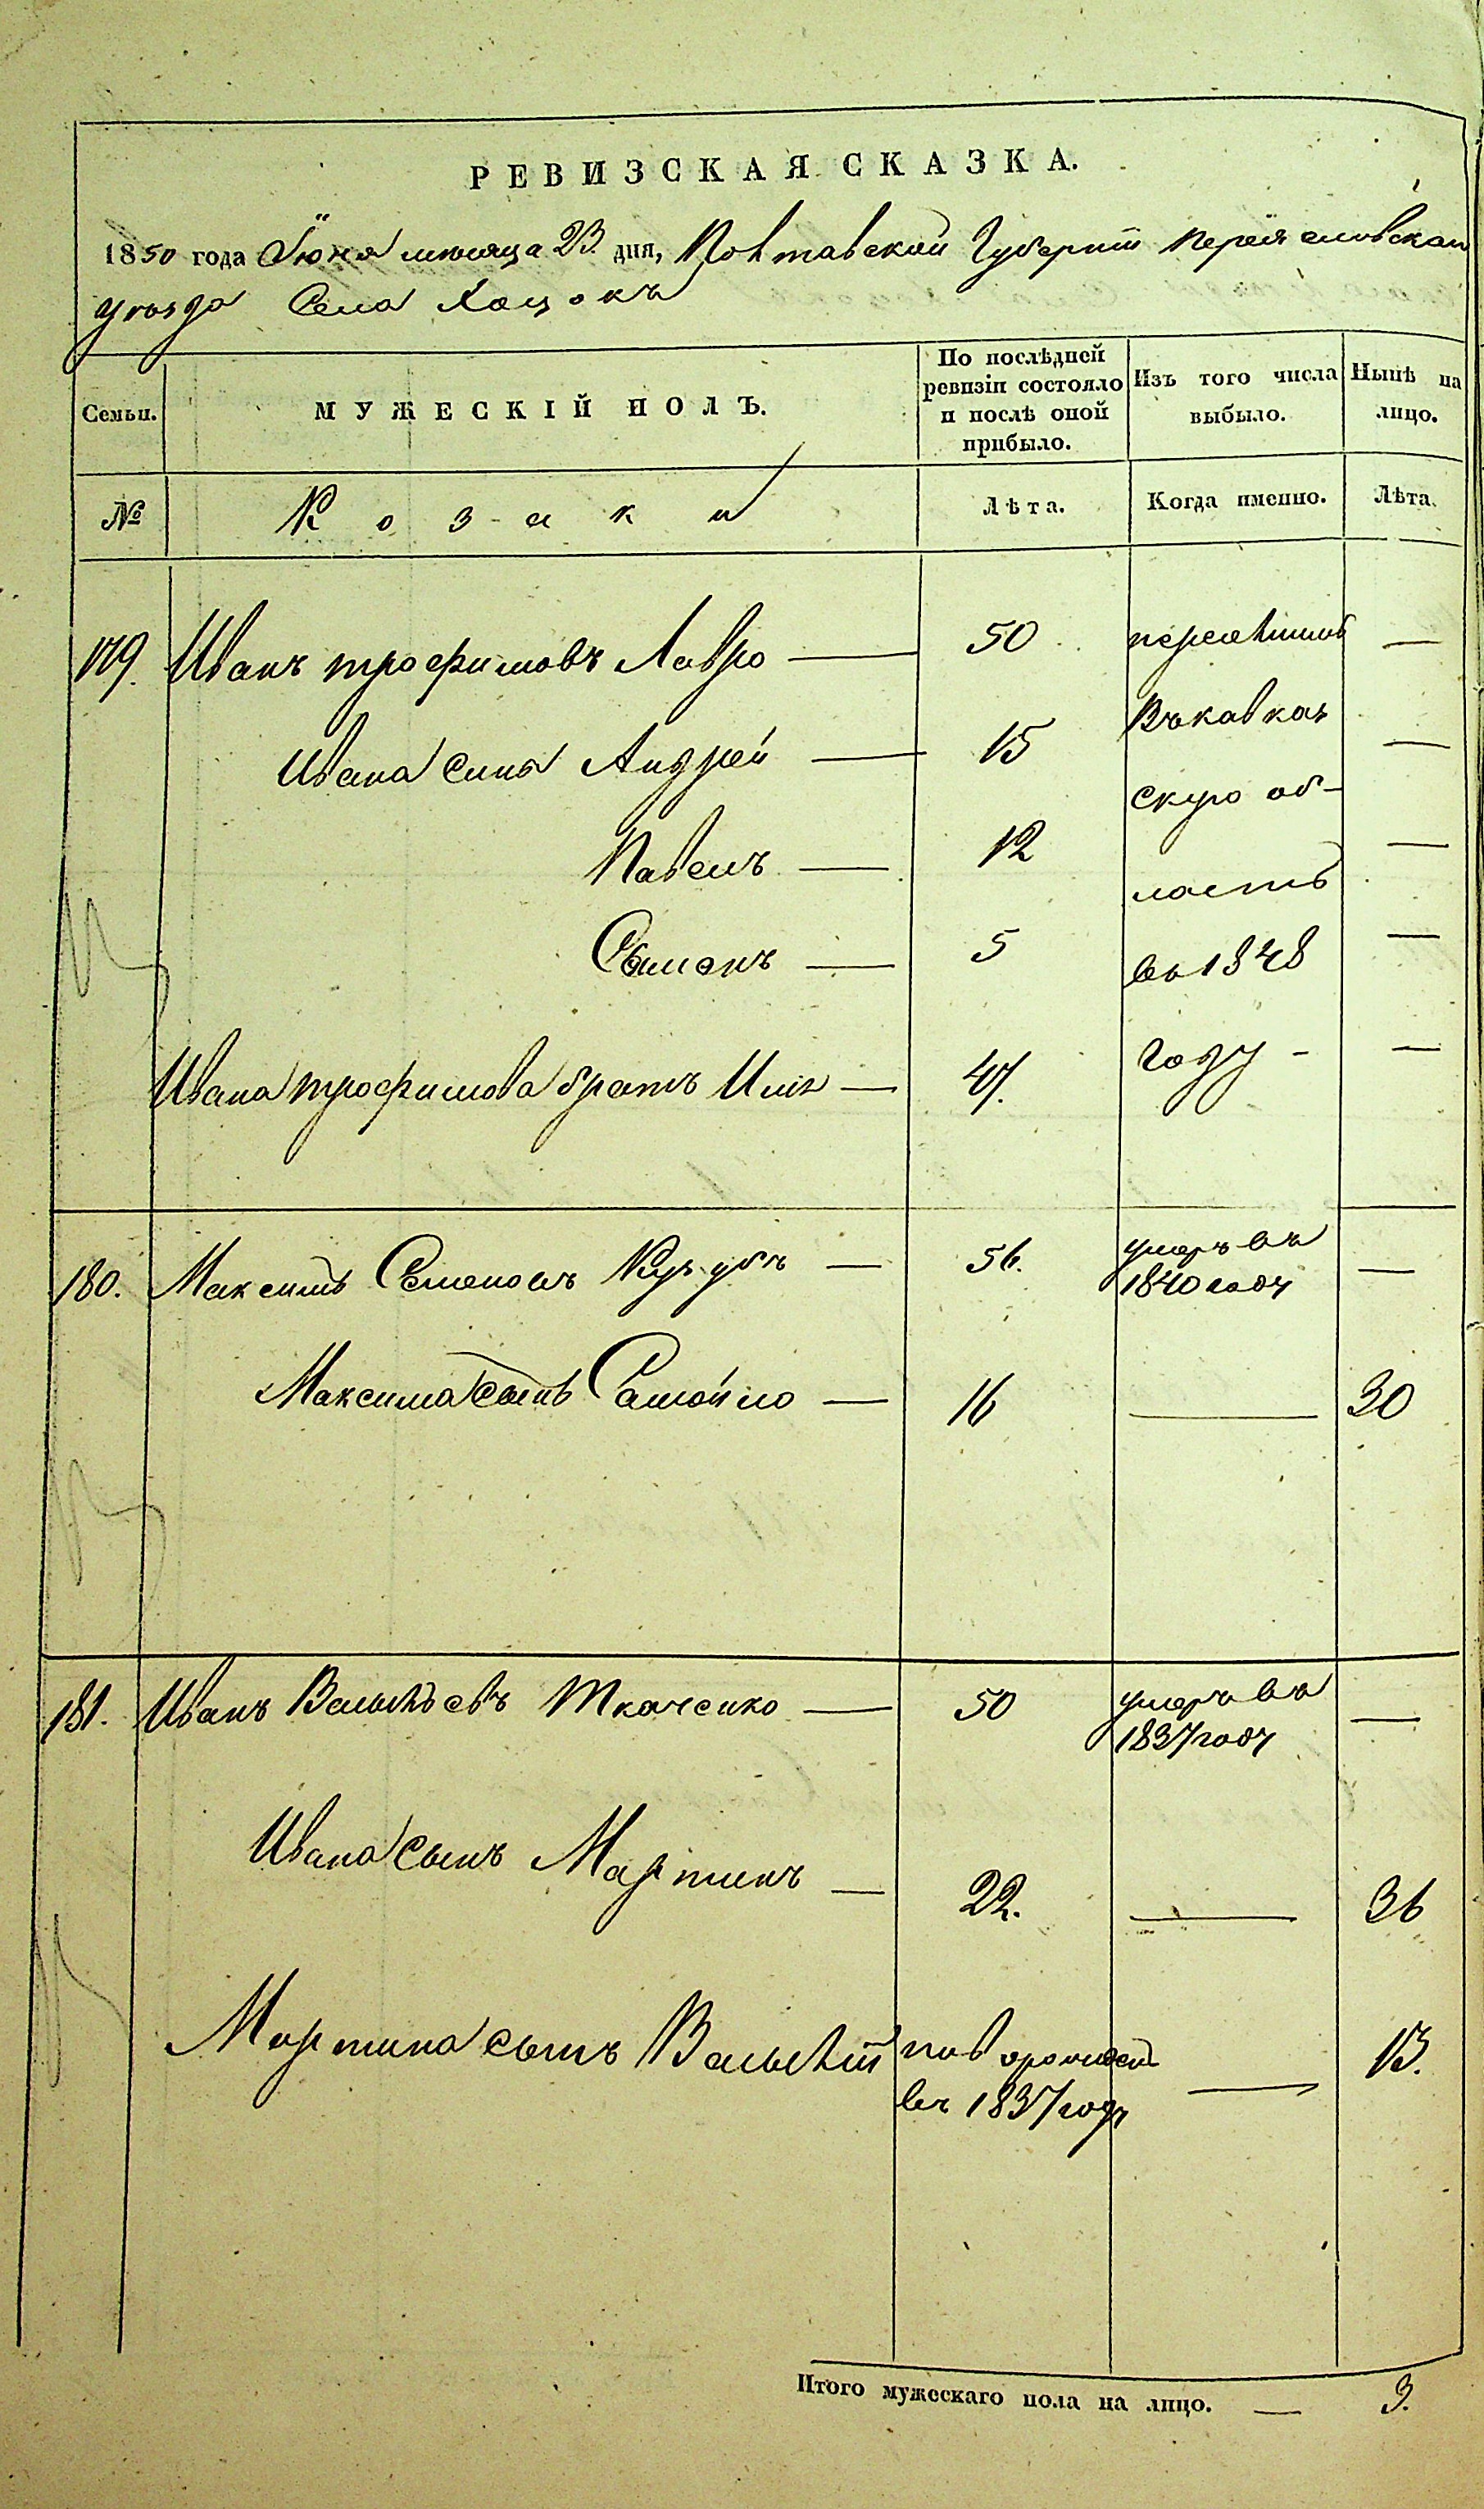 РЕВИЗСКАЯ СКАЗКА.
1850 года Іюня мѣсяца 23 дня, Полтавской Губерніи Переяславскаго
уѣзда Села Хоцокъ
Семьи. МУЖЕСКІЙ ПОЛЪ. По послѣдней ревизіи состояло и послѣ оной прибыло. Изъ того числа выбыло. Нынѣ на лицо.
№ Козаки Лѣта. Когда именно. Лѣта.
179. Иванъ трофимовъ Лавро — 50 переселились —
Ивана сынъ Андрей — 15 въ кавказ —
скую об-
Павелъ — 12 ласть —
Семенъ — 5 въ 1848 —
Ивана трофимова братъ Илья — 47. году - —
180. Максимъ Семеновъ — 56. умеръ въ 1840 году —
Максима сынъ Самойло — 16 — 30
181. Иванъ Васильевъ Ткаченко — 50 умеръ въ 1837 году —
Ивана сынъ Мартинъ — 22. — 36
Мартина сынъ Василій новорожден въ 1837 году — 13.
Итого мужескаго пола на лицо. — 3.